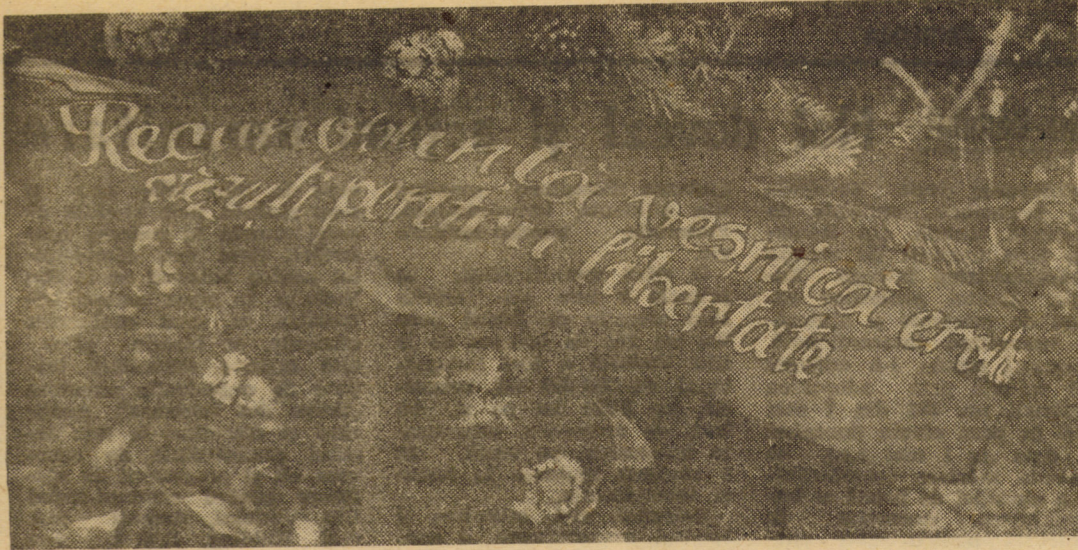 Recunoștință veșnică eroilor
căzuți pentru libertate